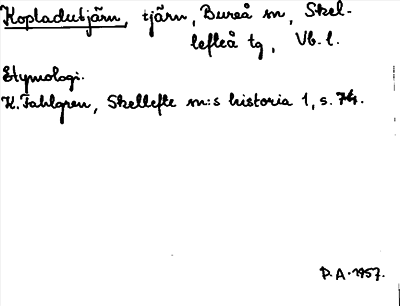 Kopladutjärn, tjärn, Bureå sn, Skel-
lefteå tg, Vb. l.
Etymologi.
K. Fahlgren, Skellefte sn:s historia 1, s. 74.
P.A. 1957.